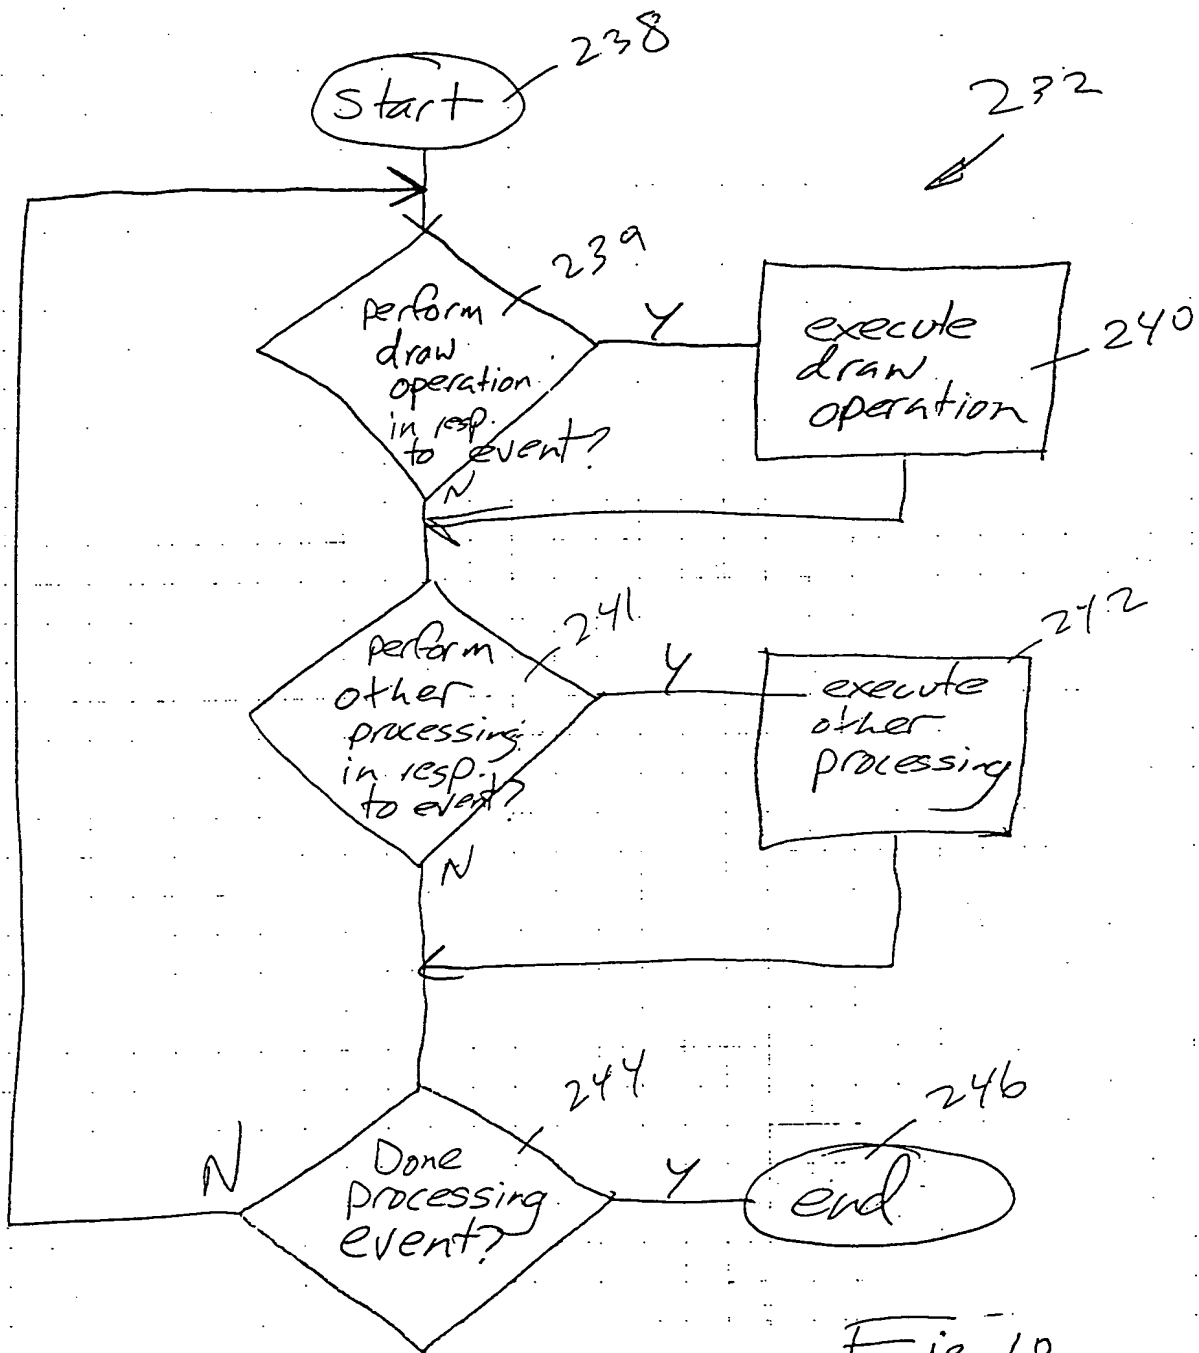 238
start
232
239
perform
draw
operation
in resp.
to event?
Y
execute
draw
operation
240
N
241
perform
other
processing
in resp.
to event?
Y
242
execute
other
processing
N
244
Done
processing
event?
N
Y
246
end
Fig. 10